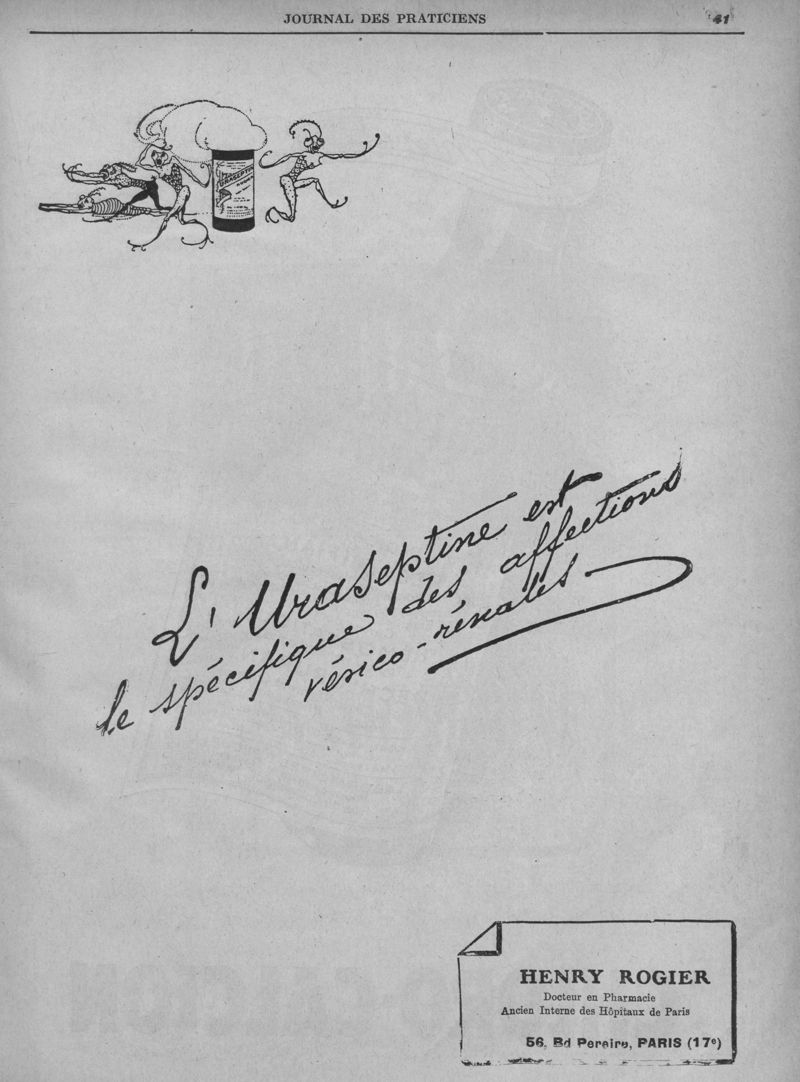 JOURNAL DES PRATICIENS 41
URASEPTINE
L'Uraseptine est
le spécifique des affections
vésico-rénales
HENRY ROGIER
Docteur en Pharmacie
Ancien Interne des Hôpitaux de Paris
56, Bd Pereire, PARIS (17e)